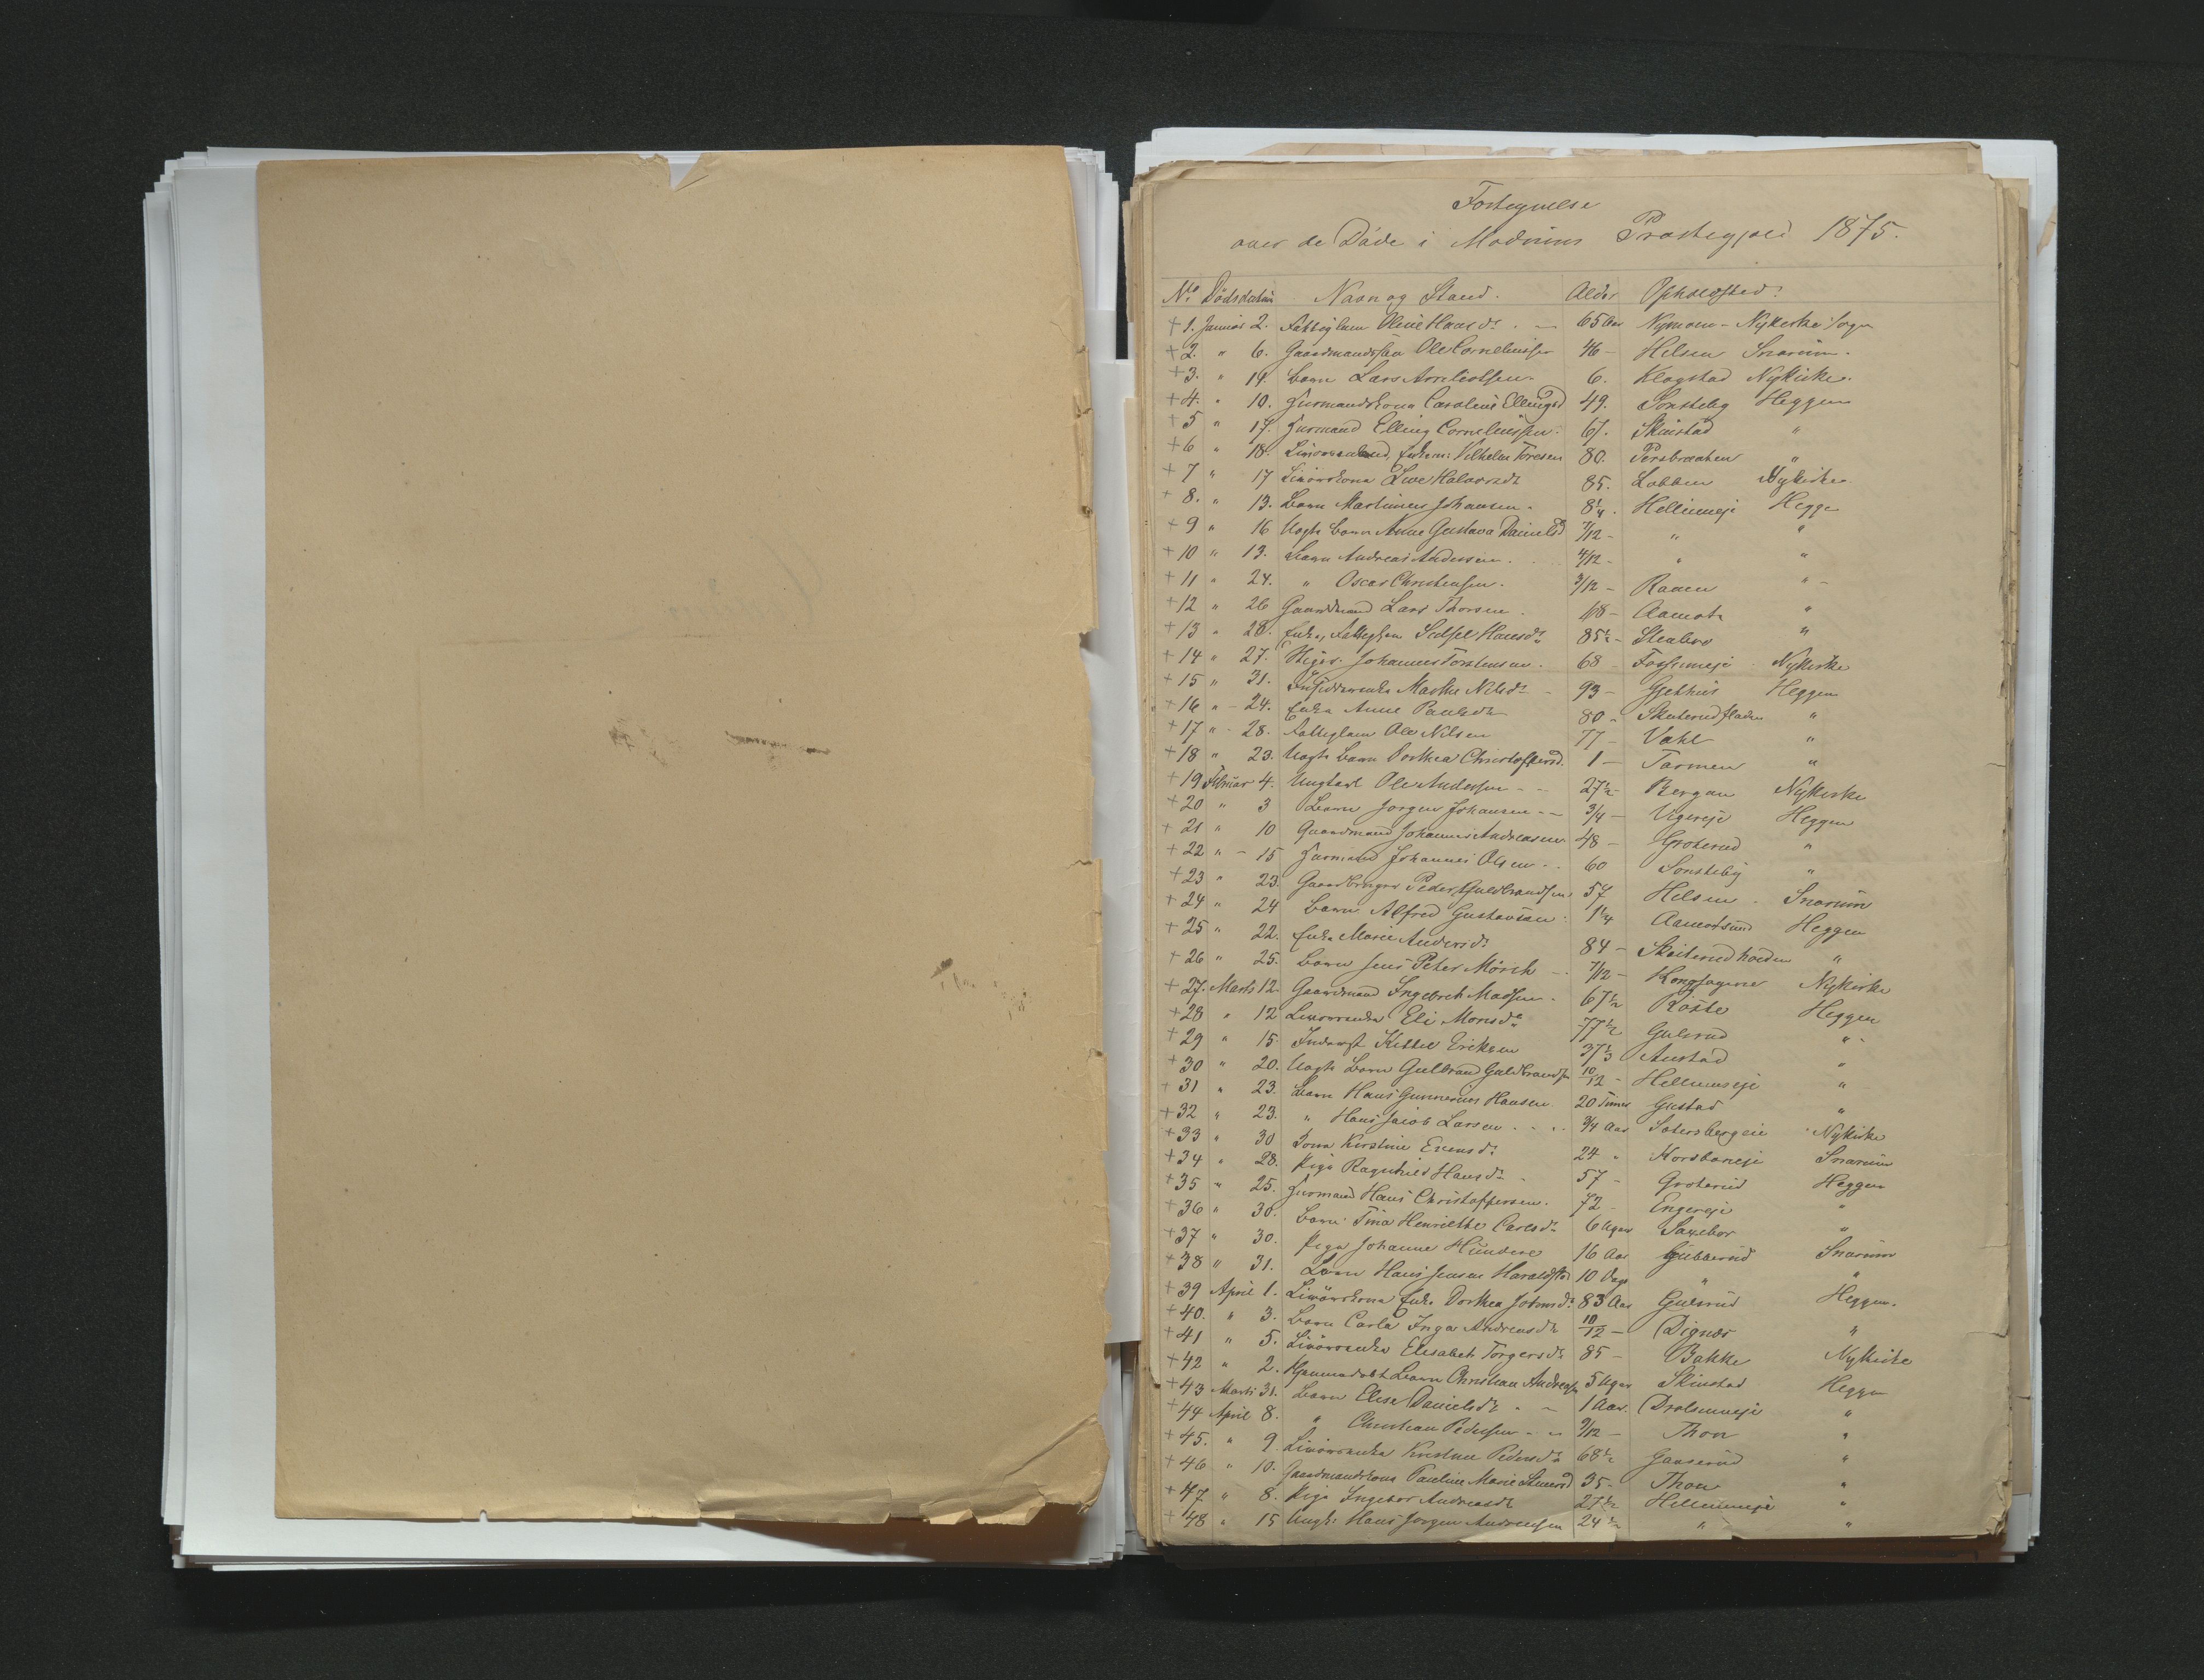 Fortegnelse
over de Døde i Modums Præstegjeld 1875.
No. Dødsdatum Navn og Stand. Alder Opholdsted.
+ 1. Januar 2. Fattiglem Oline Hansdr. — 65 Aar Nymoen - Nykirke Sogn
+ 2. " 6. Gaardmandssøn Ole Corneliussen 46 — Helsen Snarum.
+ 3. " 14. Barn Lars 6. Klogstad Nykirke.
+ 4. " 10. Husmandskone Caroline Ellingsd 49. Sønsteby Heggen
+ 5 " 17. Husmand Elling Corneliussen. 67. Skinstad "
+ 6 " 18. Vilhelm Toresen 80. Persbraaten "
+ 7 " 17 Live Halvorsdr 85. Lobben Nykirke
+ 8. " 13. Barn Martinius Johansen. 8 1/4. Hellumeje Hegge
+ 9 " 16 Uægte barn Anne Gustava Danielsd 7/12 - " "
+ 10 " 13. Barn Andreas Andersen. 4/12 - " "
+ 11 " 24. " Oscar Christensen. 3/12 - Raaen " -
+ 12 " 26 Gaardmand Lars Thorsen. 48 - Aamot "
+ 13 " 28. Enke, Fattiglem Sidsel Hansdr 85 1/2 - Stenbro "
+ 14 " 27. Johannes Torstensen. 68 - Fossumeje Nykirke
+ 15 " 31. Marthe Nilsdr - 93 - Gjethus Heggen
+ 16 " - 24. Enke Anne Paulsdr 80 - Skuterudflaten "
+ 17 " - 28. Fattiglem Ole Nilsen 77 - Vahl "
+ 18 " 23. Uægte Barn Dorthea Christoffersd. 1 — Tormen "
+ 19 Februar 4. Ungkarl Ole Andersen - - 27 1/2 - Bergan Nykirke
+ 20 " 3 Barn Jørgen Johansen - - 3/4 — Vigereje Heggen
+ 21 " 10 Gaardmand Johannes Andreasen 48 — Groterud "
+ 22 " - 15 Husmand Johannes Olsen - - 60 Sønsteby "
+ 23 " 23. Gaardbruger Peder Guldbrandsen 57 Helsen - Snarum
+ 24 " 24 Barn Alfred Gustavsen. 1 1/4 Aamotsund Heggen
+ 25 " 22. Enke Marie Andersdr 84 — "
+ 26 " 25. Barn Jens Peter Mörch - 7/12 — Kongssagene Nykirke
+ 27. Marts 12. Gaardmand Ingebret Madsen. 67 1/2 Røste Heggen
+ 28 " 12 Eli Monsdr 77 1/2 Gulsrud "
+ 29 " 15 Inderst Kittel Eriksen 37 1/3 Austad "
+ 30 " 20. Uægte Barn Gulbrand Guldbrandsen 10/12 - Hellumseje "
+ 31 " 23. Barn Hans Gunnerius Hansen. 20 Timer Gustad "
+ 32 " 23. " Hans Jacob Larsen . . . 3/4 Aar Nykirke
+ 33 " 30 Kirstine Evensdr 24 " Snarum
+ 34 " 28. Pige Ragnhild Hansdr. 57 - Groterud Heggen
+ 35 " 25. Husmand Hans Christoffersen. 72 - Engereje "
+ 36 " 30. Barn Tina Henriette Carlsdr 6 Uger Saxebor "
+ 37 " 30. Pige Johanne Hundere 16 Aar Gubberud Snarum
+ 38 " 31. Barn Hans Jensen 10 Dage " "
+ 39 April 1. Enke Dorthea Johnsdr 83 Aar Gulsrud Heggen.
+ 40. " 3. Barn Carla Inga Andreasdr 10/12 — Dignes "
+ 41 " 5. Elisabeth Torgersdr 85 — Bakke Nykirke
+ 42 " 2. Hjemmedøbt Barn Christian Andreasen 5 Uger Skinstad Heggen
+ 43 Marts 31. Barn Elise Danielsdr - — 1 Aar. Drolsumeje "
+ 44 April 8. " Christian Pedersen - - 9/12 — Thon "
+ 45. " 9. Kirstine Pedersdr 68 1/2 "
+ 46 " 10. Gaardmandskone Pauline Marie 35 - Thon "
+ 47 " 8. Pige Ingebor Andreasdr 27 1/2 Hellumeje "
+ 48 " 15 Ungk. Hans Jørgen Andreasen 24 1/2 " "